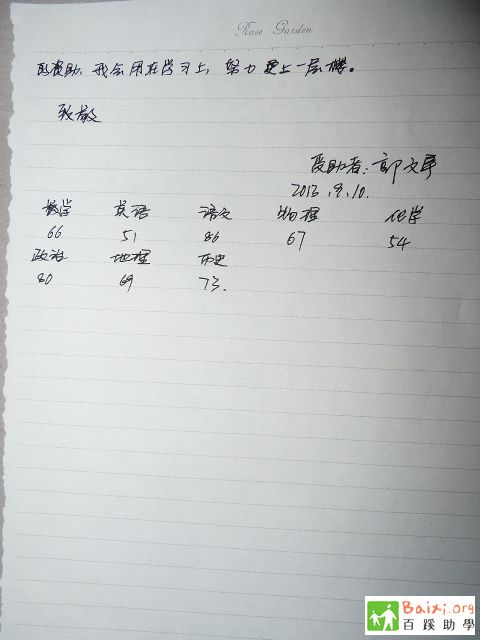 Rose Garden
的援助,我会用在学习上,努力更上一层楼。
致敬
受助者:郭文
2013.9.10.
数学 英语 语文 物理 化学
66 51 86 67 54
政治 地理 历史
80 69 73.
Baixi.org
百蹊助學